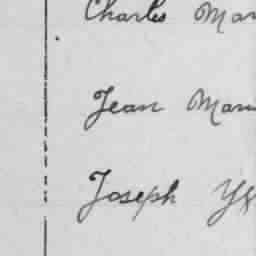 Charles Mar
Jean Mari
Joseph Y